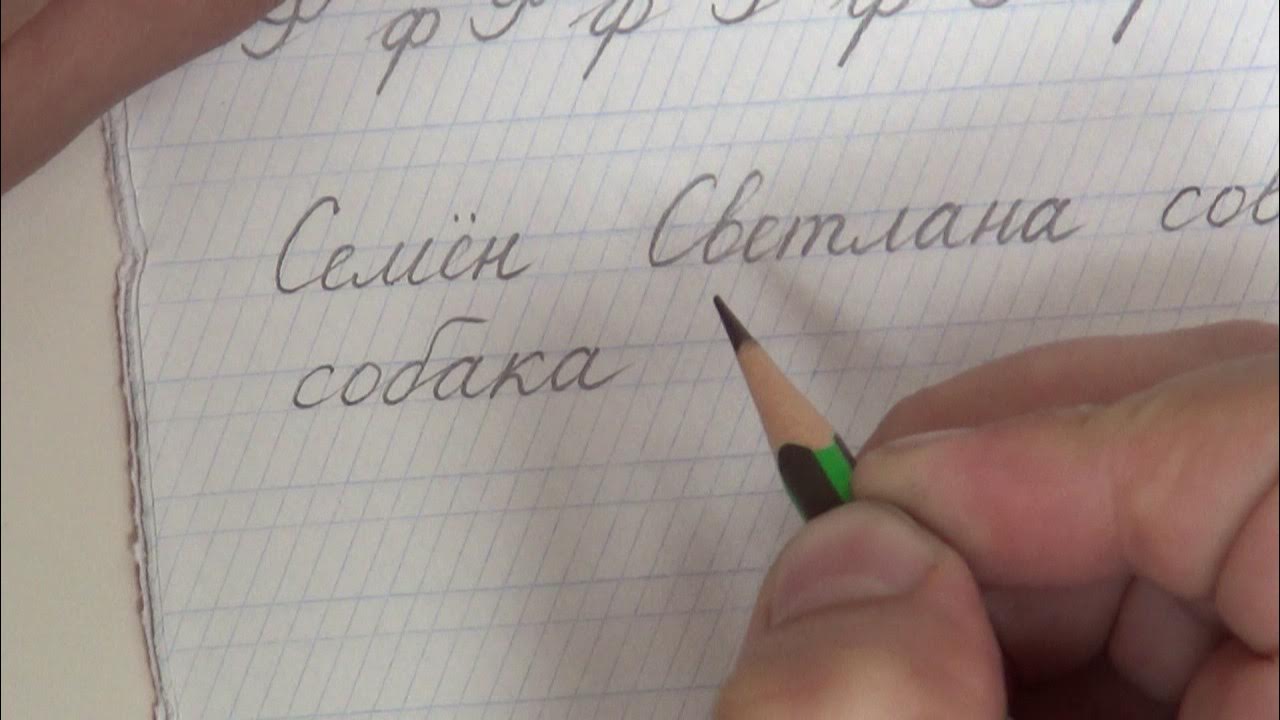 ф ф ф
Семён Светлана сов
собака